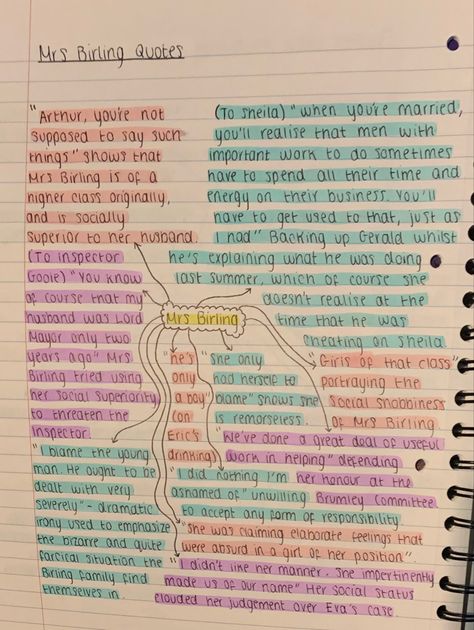 Mrs Birling Quotes
"Arthur, you're not
supposed to say such
things" shows that
Mrs Birling is of a
higher class originally,
and is socially
superior to her husband.
(To Sheila) "when you're married,
you'll realise that men with
important work to do sometimes
have to spend all their time and
energy on their business. You'll
have to get used to that, just as
I had" Backing up Gerald whilst
he's explaining what he was doing
last summer, which of course she
doesn't realise at the
time that he was
cheating on Sheila
(To Inspector
Goole) "You know
of course that my
husband was Lord
Mayor only two
years ago" Mrs
Birling tried using
her social superiority
to threaten the
Inspector.
Mrs Birling
"he's
only
a boy"
(on
Eric's
drinking)
"she only
had herself to
blame" shows she
is remorseless.
"Girls of that class"
portraying the
social snobbiness
of Mrs Birling
"We've done a great deal of useful
work in helping" defending
her honour at the
Brumley Committee
"I blame the young
man. He ought to be
dealt with very
severely" - dramatic
irony used to emphasize
the bizarre and quite
farcical situation the
Birling family find
themselves in.
"I did nothing I'm
asnamed of" unwilling
to accept any form of responsibility.
"She was claiming elaborate feelings that
were absurd in a girl of her position".
"I didn't like her manner. She impertinently
made us of our name" Her social status
clouded her judgement over Eva's case.